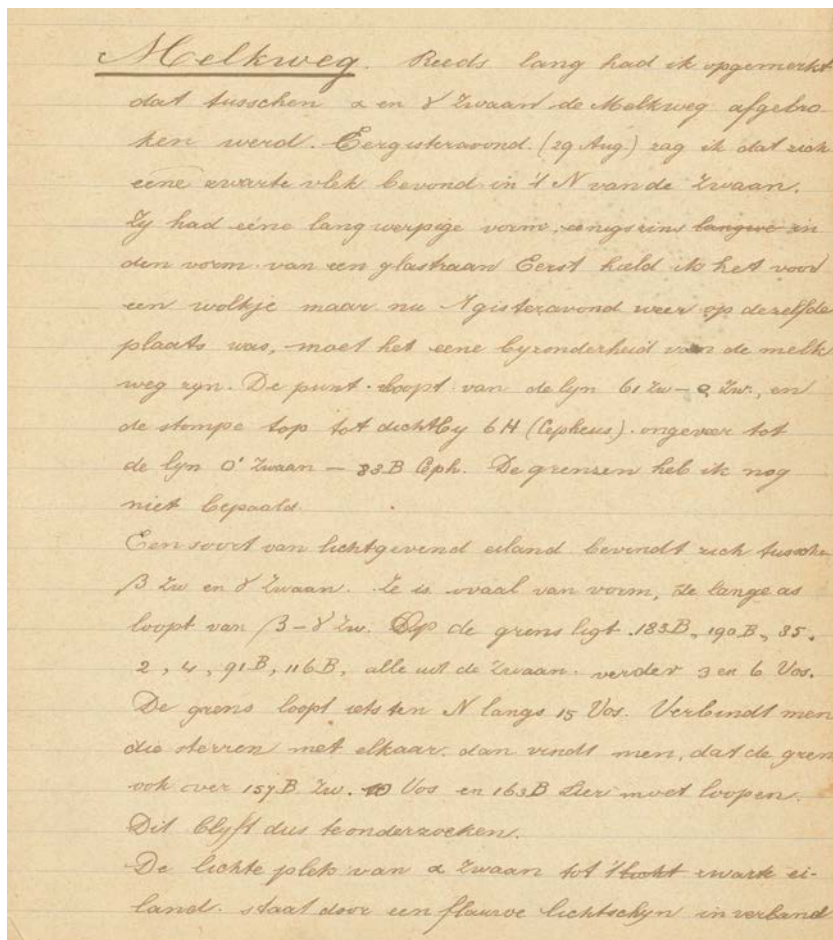 Melkweg. Reeds lang had ik opgemerkt
dat tusschen α en γ Zwaan de Melkweg afgebro
ken werd. Eergisteravond. (29 Aug.) zag ik dat zich
eene zwarte vlek bevond in 't N van de Zwaan.
Zy had eene langwerpige vorm, eenigszins langwe in
den vorm van een glastraan Eerst hield ik het voor
een wolkje maar nu 't gisteravond weer op dezelfde
plaats was, moet het eene byzonderheid van de melk
weg zyn. De punt loopt van de lyn 61 Zw – ρ Zw., en
de stompe top tot dichtby 6H (Cepheus). ongeveer tot
de lyn O' Zwaan – 33B Ceph. De grenzen heb ik nog
niet bepaald.
Een soort van lichtgevend eiland bevindt zich tussche
β Zw en γ Zwaan. Ze is ovaal van vorm, de lange as
loopt van β – γ Zw. Op de grens ligt 183B, 190B, 35.
2, 4, 91B, 116B, alle uit de Zwaan. verder 3 en 6 Vos.
De grens loopt iets ten N langs 15 Vos. Verbindt men
die sterren met elkaar. dan vindt men, dat de gren
ook over 157B Zw. 10 Vos en 163B Lier moet loopen.
Dit blyft dus te onderzoeken.
De lichte plek van α Zwaan tot 't licht zwarte ei-
land. staat door een flauwe lichtschyn in verband